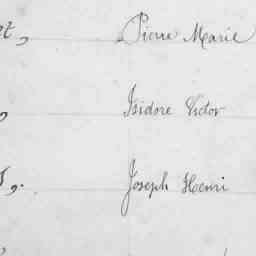 et, Pierre Marie
, Isidore Victor
, Joseph Henri